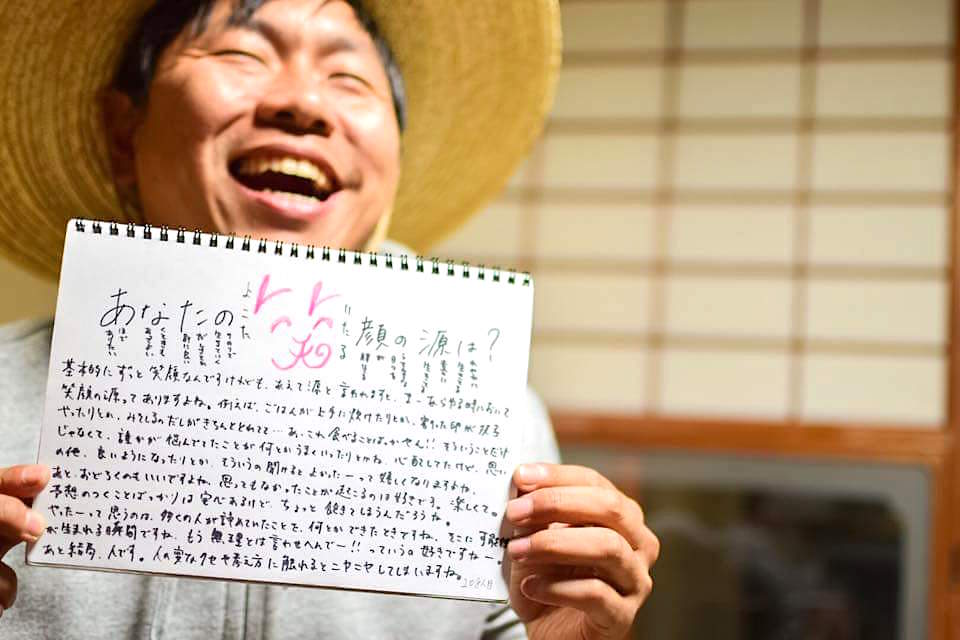 あなたの笑顔の源は?
よこた
いたる
基本的にずっと笑顔なんですけれども、あえて源と言われますと、まーあらゆる時において
笑顔の源ってありますよね。例えば、ごはんが上手に炊けたりとか、割った卵が双子
やったりとか、みそしるのだしがきちんととれてて…あ、これ食べることばっかやん!!そういうことだけ
じゃなくて、誰かが悩んでてたことが何とかうまくいったりとかね、心配してたけど、思い
の他、良いようになったりとか、そういうの聞けるとよかったーって嬉しくなりますよね。
あと、おどろくのもいいですよね。思ってもなかったことが起こるのは好きです。楽しくて。
予想のつくことばっかりは安心あるけど、ちょっと飽きてしまうんだろうな。
やったーって思うのは、多くの人が諦めていたことを、何とかできたときですね、そこに可能性
が生まれる瞬間ですね、もう無理とは言わせへんでー!!っていう。好きですねー。
あと結局、人です。人の変なクセや考え方に触れるとニヤニヤしてしまいますね。